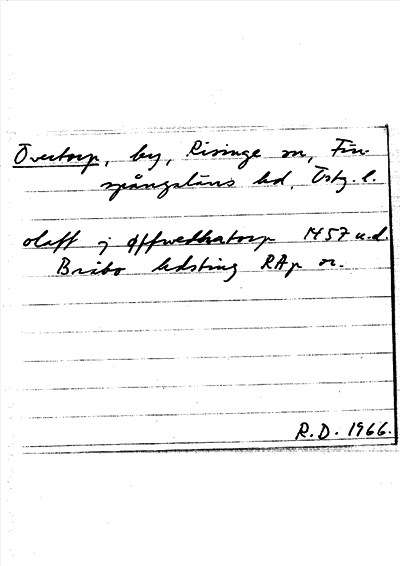 Övertorp, by, Risinge sn, Fin-
spångsläns hd, Östg. l.
olaff j øffwethatorp 1457 u.d.
Bråbo hdsting RAp or.
R.D. 1966.